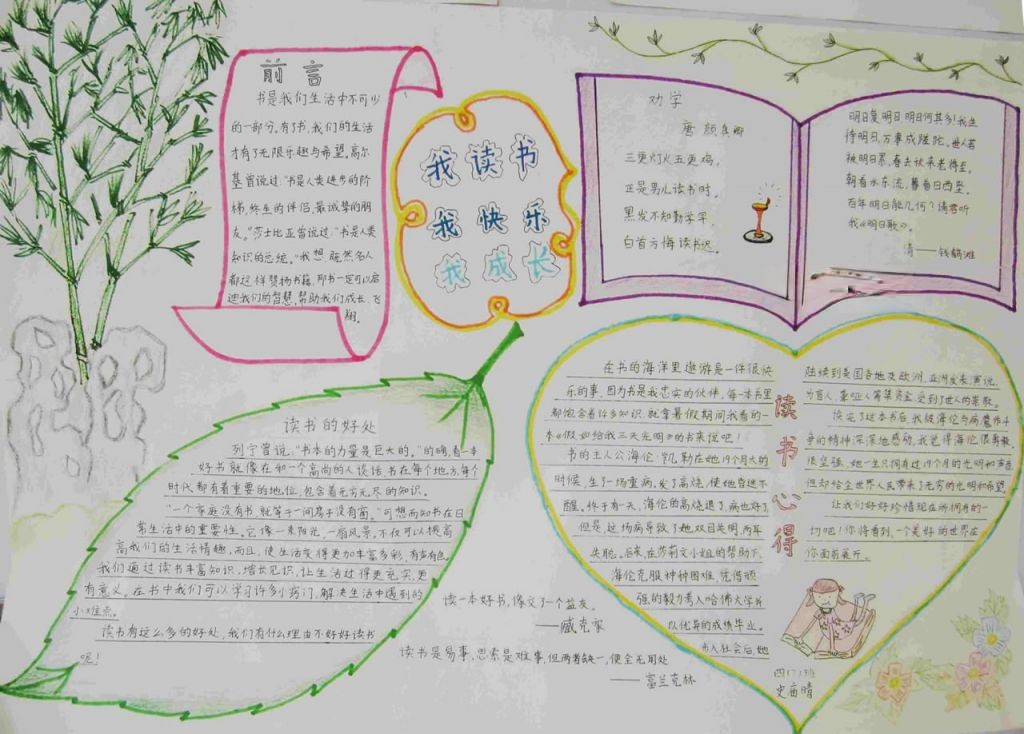 前言
书是我们生活中不可少
的一部分。有了书,我们的生活
才有了无限乐趣与希望。高尔
基曾说过:"书是人类进步的阶
梯,终生的伴侣,最诚挚的朋
友。"莎士比亚曾说过:"书是人类
知识的总统。"我想,既然名人
都这样赞扬书籍,那书一定可以启
迪我们的智慧,帮助我们成长、飞
翔。
我读书
我快乐
我成长
劝学
唐 颜真卿
三更灯火五更鸡,
正是男儿读书时。
黑发不知勤学早,
白首方悔读书迟。
明日复明日,明日何其多!我生
待明日,万事成蹉跎。世人若
被明日累,春去秋来老将至。
朝看水东流,暮看日西坠。
百年明日能几何?请君听
我《明日歌》。
清——钱鹤滩
读书的好处
列宁曾说,"书本的力量是巨大的。"的确,看一本
好书就像在和一个高尚的人谈话。书在每个地方,每个
时代都有着重要的地位,包含着无穷无尽的知识。
"一个家庭没有书,就等于一间房子没有窗。"可想而知书在日
常生活中的重要性。它像一束阳光,一扇风景,不仅可以提高
高我们的生活情趣,而且,使生活变得更加丰富多彩,有声有色。
我们通过读书丰富知识,增长见识,让生活过得更充实,更
有意义。在书中我们可以学习许多小窍门,解决生活中遇到的
小难点。
读书有这么多的好处,我们有什么理由不好好读书
呢!
读一本好书,像交了一个益友。
——臧克家
读书是易事,思索是难事,但两者缺一,便全无用处
——富兰克林
读书心得
在书的海洋里遨游是一件很快
乐的事,因为书是我忠实的伙伴,每一本书里
都饱含着许多知识。就拿暑假期间我看的一
本《假如给我三天光明》的书来说吧!
书的主人公海伦·凯勒在她19个月大的
时候,生了一场重病,发了高烧,使她昏迷不
醒。终于有一天,海伦的高烧退了,病也好了,
但是,这场病导致了她双目失明,两耳
失聪。后来,在莎莉文小姐的帮助下,
海伦克服种种困难,凭借顽
强的毅力考入哈佛大学并
以优异的成绩毕业。
步入社会后,她
陆续到美国各地及欧洲、亚洲发表演说,
为盲人、聋哑人筹集资金,受到了世人的赞敬。
读完了这本书后,我被海伦与病魔作斗
争的精神深深地感动,我觉得海伦很勇敢,
很坚强,她一生只拥有过19个月的光明和声音
但却给全世界人民带来了无穷的光明和希望。
让我们好好珍惜现在所拥有的一
切吧!你将看到,一个美好的世界在
你面前展开。
四(7)班
史庙晴